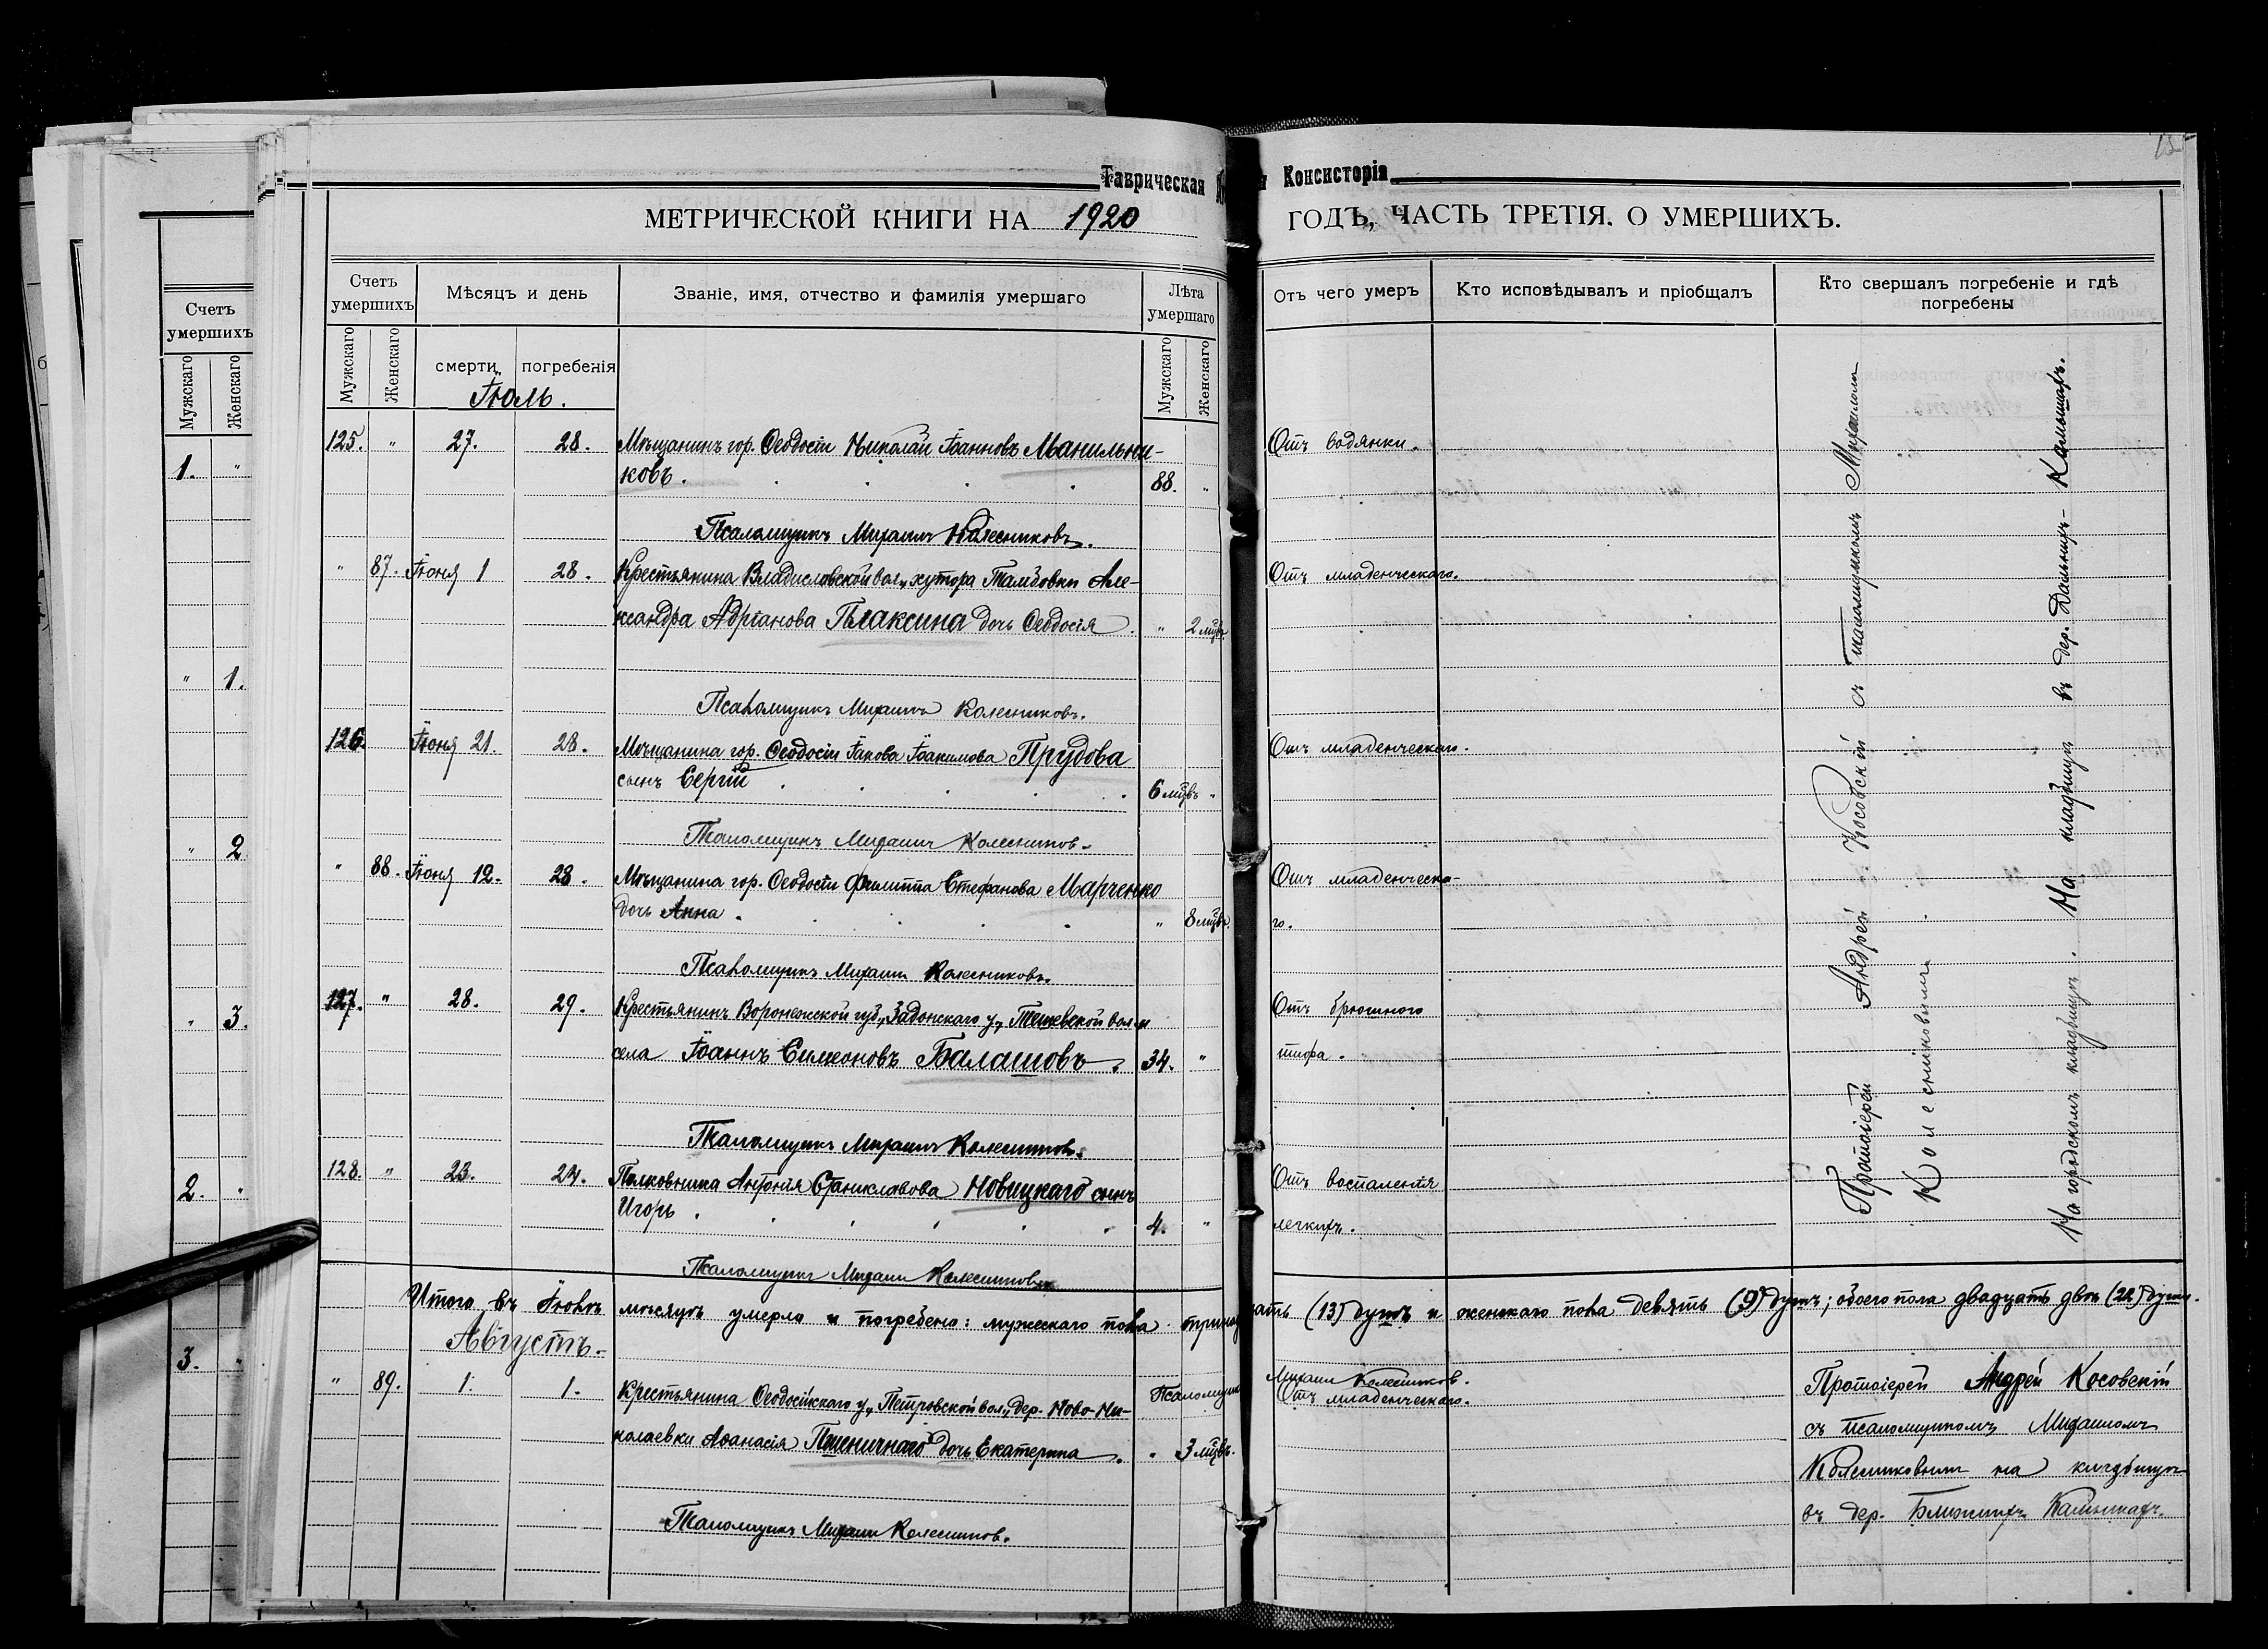 Таврическая
Консисторія
МЕТРИЧЕСКОЙ КНИГИ НА 1920
ГОДЪ, ЧАСТЬ ТРЕТІЯ. О УМЕРШИХЪ.
Счетъ умершихъ
Мужскаго
Женскаго
1. "
" 1.
" 2
" 3.
2. "
3. "
Счетъ умершихъ
Мѣсяцъ и день
Званіе, имя, отчество и фамилія умершаго
Лѣта умершаго
Отъ чего умеръ
Кто исповѣдывалъ и пріобщалъ
Кто свершалъ погребеніе и гдѣ погребены
Мужскаго
Женскаго
смерти
погребенія
Мужскаго
Женскаго
Іюль.
125. " 27. 28. Мѣщанинъ гор. Ѳеодосіи Николай Іоанновъ Манильни-
ковъ. 88. "
Отъ водянки.
Псаломщикъ Михаилъ Колесниковъ.
" 87. Іюня 1 28. Крестьянина Владиславской вол., хутора Тамбовки Але-
ксандра Адріанова Плаксина дочь Ѳеодосія. " 2 мѣс.
Отъ младенческаго.
Псаломщикъ Михаилъ Колесниковъ.
126. Іюня 21. 28. Мѣщанина гор. Ѳеодосіи Іакова Іоакимова Прудова
сынъ Сергій 6 мѣс. "
Отъ младенческаго.
Псаломщикъ Михаилъ Колесников.
" 88. Іюня 12. 28. Мѣщанина гор. Ѳеодосіи Филиппа Стефанова Марченко
дочь Анна. " 8 мѣс.
Отъ младенческа-
го.
Псаломщикъ Михаилъ Колесниковъ.
127. " 28. 29. Крестьянинъ Воронежской губ., Задонскаго у., Тешевской вол. и
села Іоаннъ Симеоновъ Балашовъ. 34. "
Отъ брюшного
тифа.
Псаломщикъ Михаилъ Колесников.
128. " 23. 24. Полковника Антонія Станиславова Новицкаго сынъ
Игорь. 4. "
Отъ воспаленія
легкихъ.
Псаломщикъ Михаилъ Колесников
Протоіерей Андрей Косовскій съ псаломщикомъ Михаиломъ
Колесниковымъ.
На городскомъ кладбищѣ. На кладбищѣ въ дер. Дальнихъ-Камышахъ.
Итого въ Іюлѣ мѣсяцѣ умерло и погребено: мужескаго пола тринадцать (13) душъ и женскаго пола девять (9) душъ; обоего пола двадцать двѣ (22) души.
Августъ.
Псаломщик Михаил Колесников.
" 89. 1. 1. Крестьянина Ѳеодосійскаго у., Петровской вол., дер. Ново-Ни-
колаевки Аѳанасія Пшеничнаго дочь Екатерина. " 3 мѣс.
Отъ младенческаго.
Протоіерей Андрей Косовскій
съ псаломщикомъ Михаиломъ
Колесниковым на кладбищѣ
въ дер. Ближнихъ Камышахъ.
Псаломщикъ Михаил Колесников.